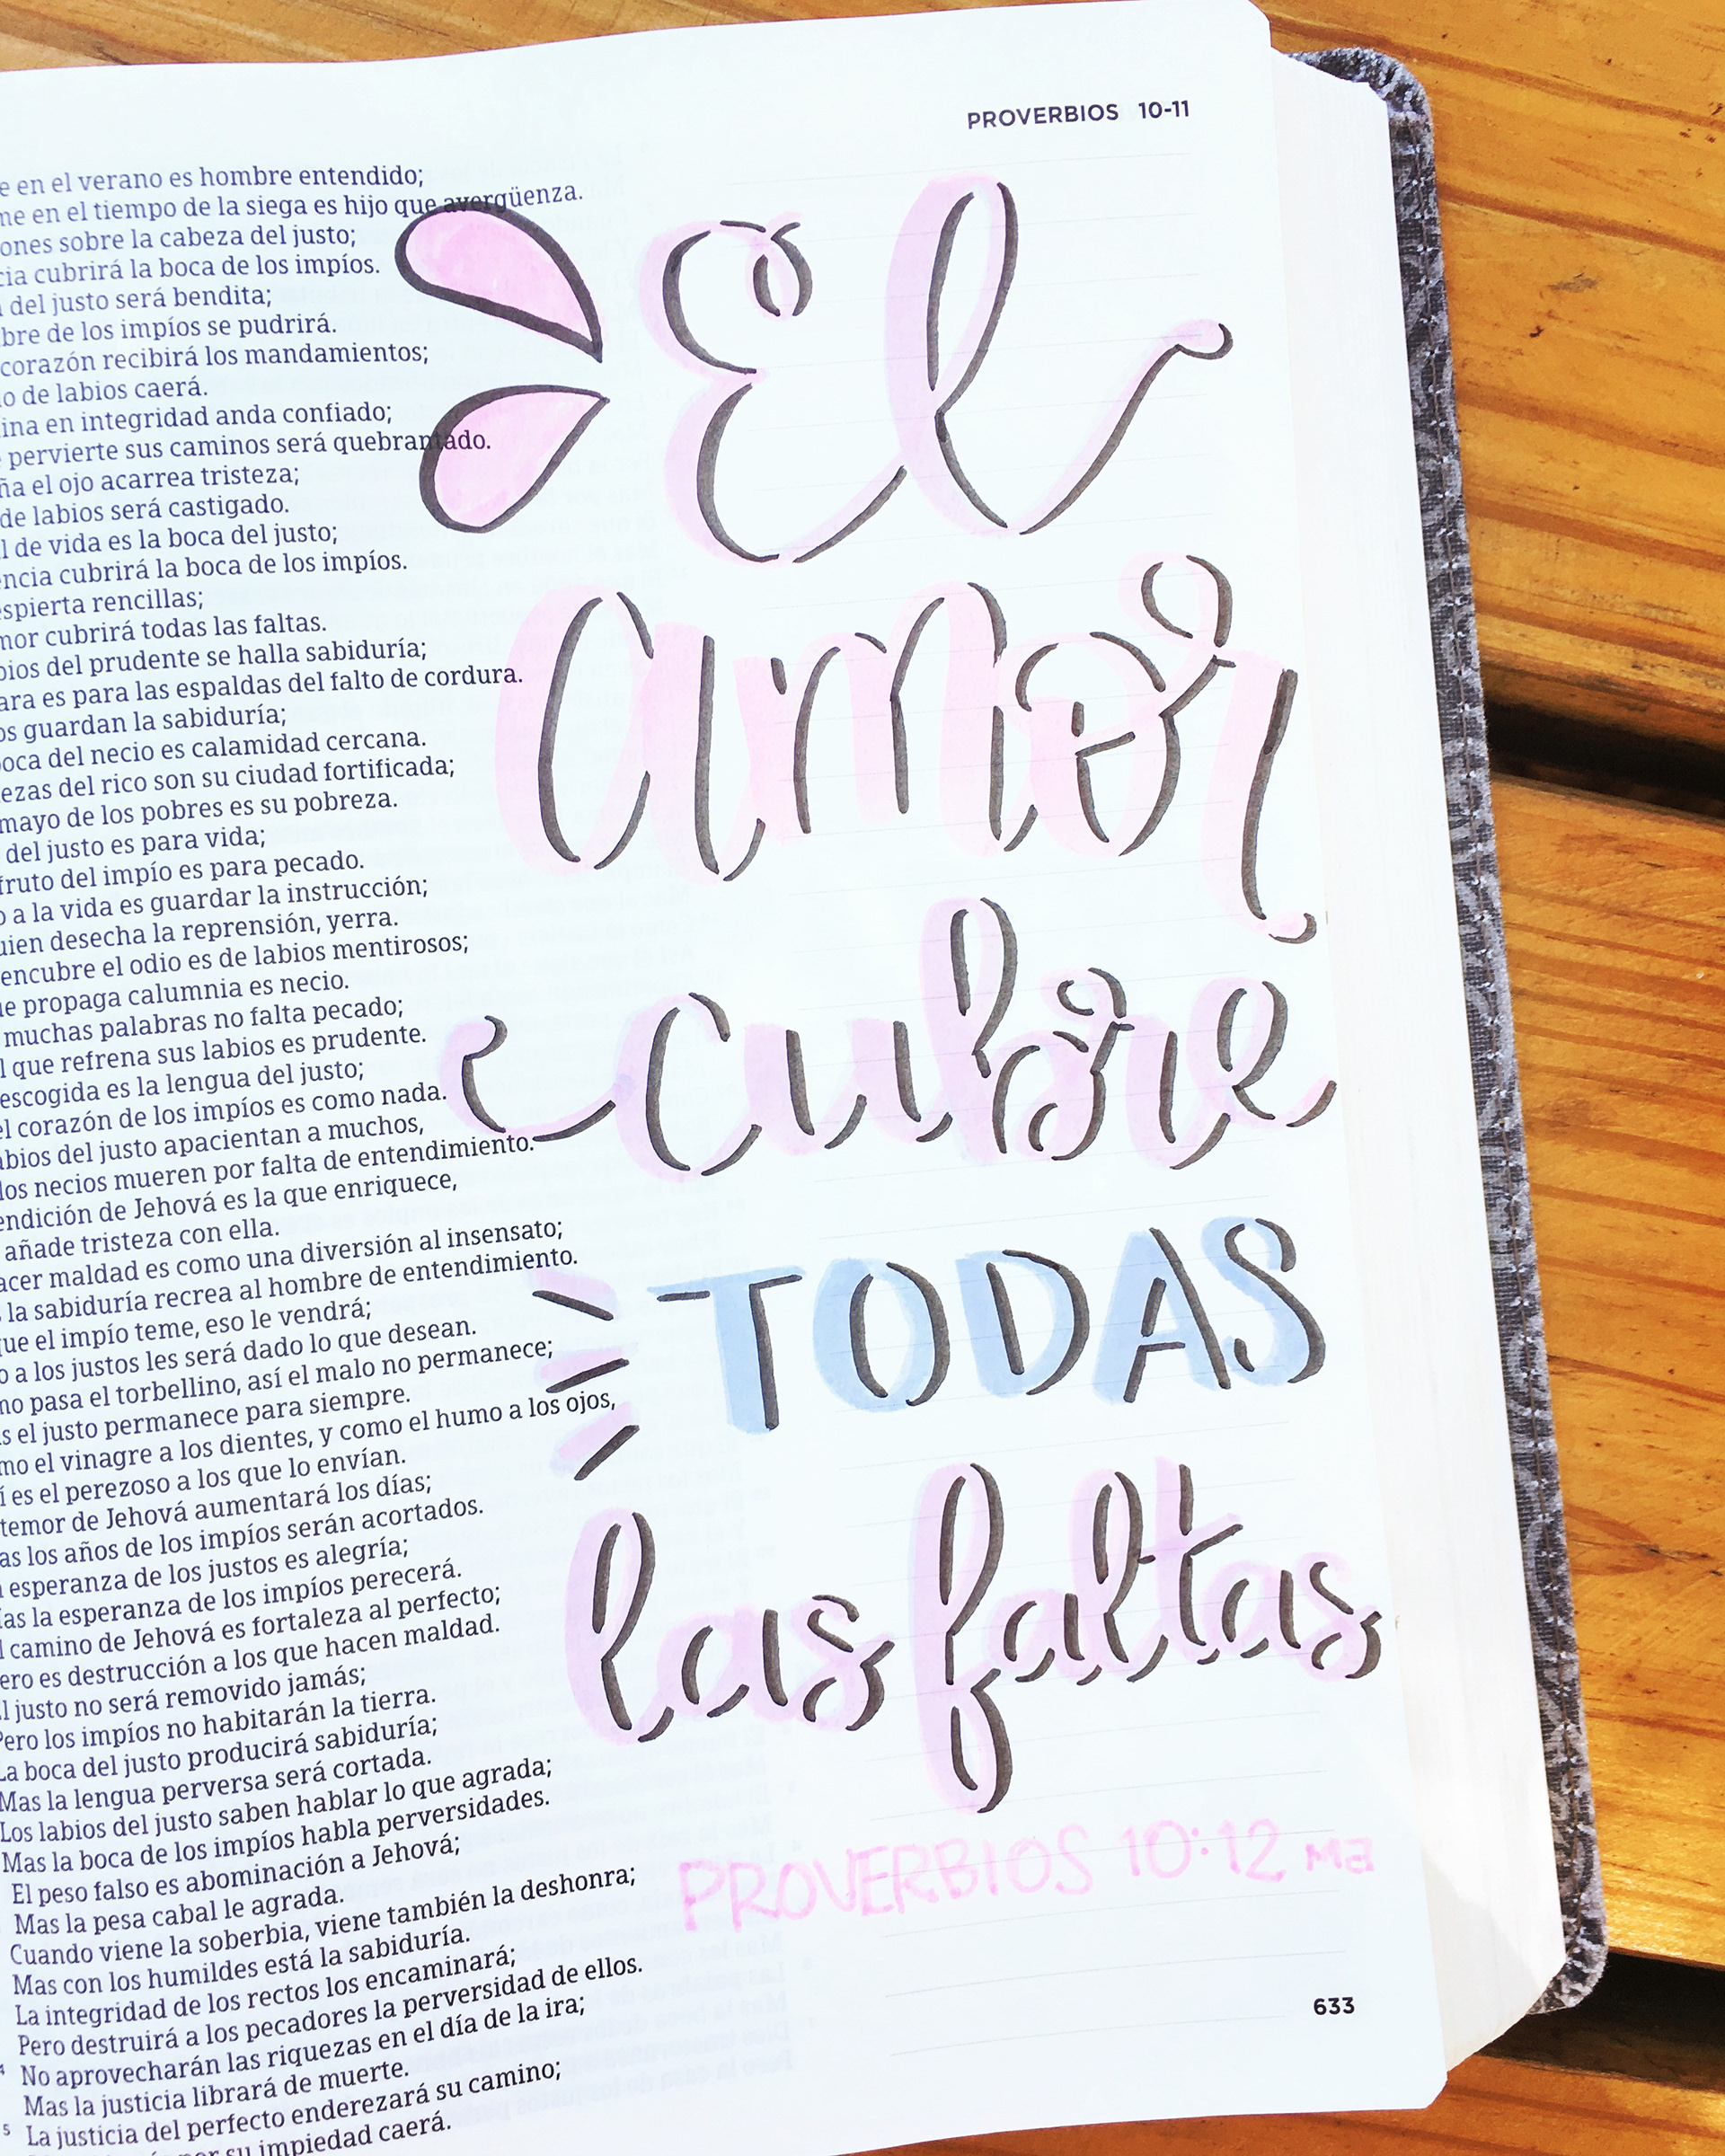 PROVERBIOS 10-11
e en el verano es hombre entendido;
me en el tiempo de la siega es hijo que avergüenza.
ones sobre la cabeza del justo;
cia cubrirá la boca de los impíos.
del justo será bendita;
bre de los impíos se pudrirá.
corazón recibirá los mandamientos;
o de labios caerá.
ina en integridad anda confiado;
pervierte sus caminos será quebrantado.
ña el ojo acarrea tristeza;
de labios será castigado.
l de vida es la boca del justo;
encia cubrirá la boca de los impíos.
espierta rencillas;
mor cubrirá todas las faltas.
bios del prudente se halla sabiduría;
ara es para las espaldas del falto de cordura.
os guardan la sabiduría;
boca del necio es calamidad cercana.
ezas del rico son su ciudad fortificada;
mayo de los pobres es su pobreza.
del justo es para vida;
fruto del impío es para pecado.
o a la vida es guardar la instrucción;
uien desecha la reprensión, yerra.
encubre el odio es de labios mentirosos;
ue propaga calumnia es necio.
muchas palabras no falta pecado;
l que refrena sus labios es prudente.
escogida es la lengua del justo;
el corazón de los impíos es como nada.
abios del justo apacientan a muchos,
los necios mueren por falta de entendimiento.
endición de Jehová es la que enriquece,
añade tristeza con ella.
acer maldad es como una diversión al insensato;
s la sabiduría recrea al hombre de entendimiento.
que el impío teme, eso le vendrá;
o a los justos les será dado lo que desean.
mo pasa el torbellino, así el malo no permanece;
as el justo permanece para siempre.
mo el vinagre a los dientes, y como el humo a los ojos,
í es el perezoso a los que lo envían.
temor de Jehová aumentará los días;
as los años de los impíos serán acortados.
a esperanza de los justos es alegría;
as la esperanza de los impíos perecerá.
l camino de Jehová es fortaleza al perfecto;
ero es destrucción a los que hacen maldad.
l justo no será removido jamás;
Pero los impíos no habitarán la tierra.
La boca del justo producirá sabiduría;
Mas la lengua perversa será cortada.
Los labios del justo saben hablar lo que agrada;
Mas la boca de los impíos habla perversidades.
El peso falso es abominación a Jehová;
Mas la pesa cabal le agrada.
Cuando viene la soberbia, viene también la deshonra;
Mas con los humildes está la sabiduría.
La integridad de los rectos los encaminará;
Pero destruirá a los pecadores la perversidad de ellos.
4 No aprovecharán las riquezas en el día de la ira;
Mas la justicia librará de muerte.
5 La justicia del perfecto enderezará su camino;
por su impiedad caerá.
El
amor
cubre
TODAS
las faltas
PROVERBIOS 10:12 ma
633